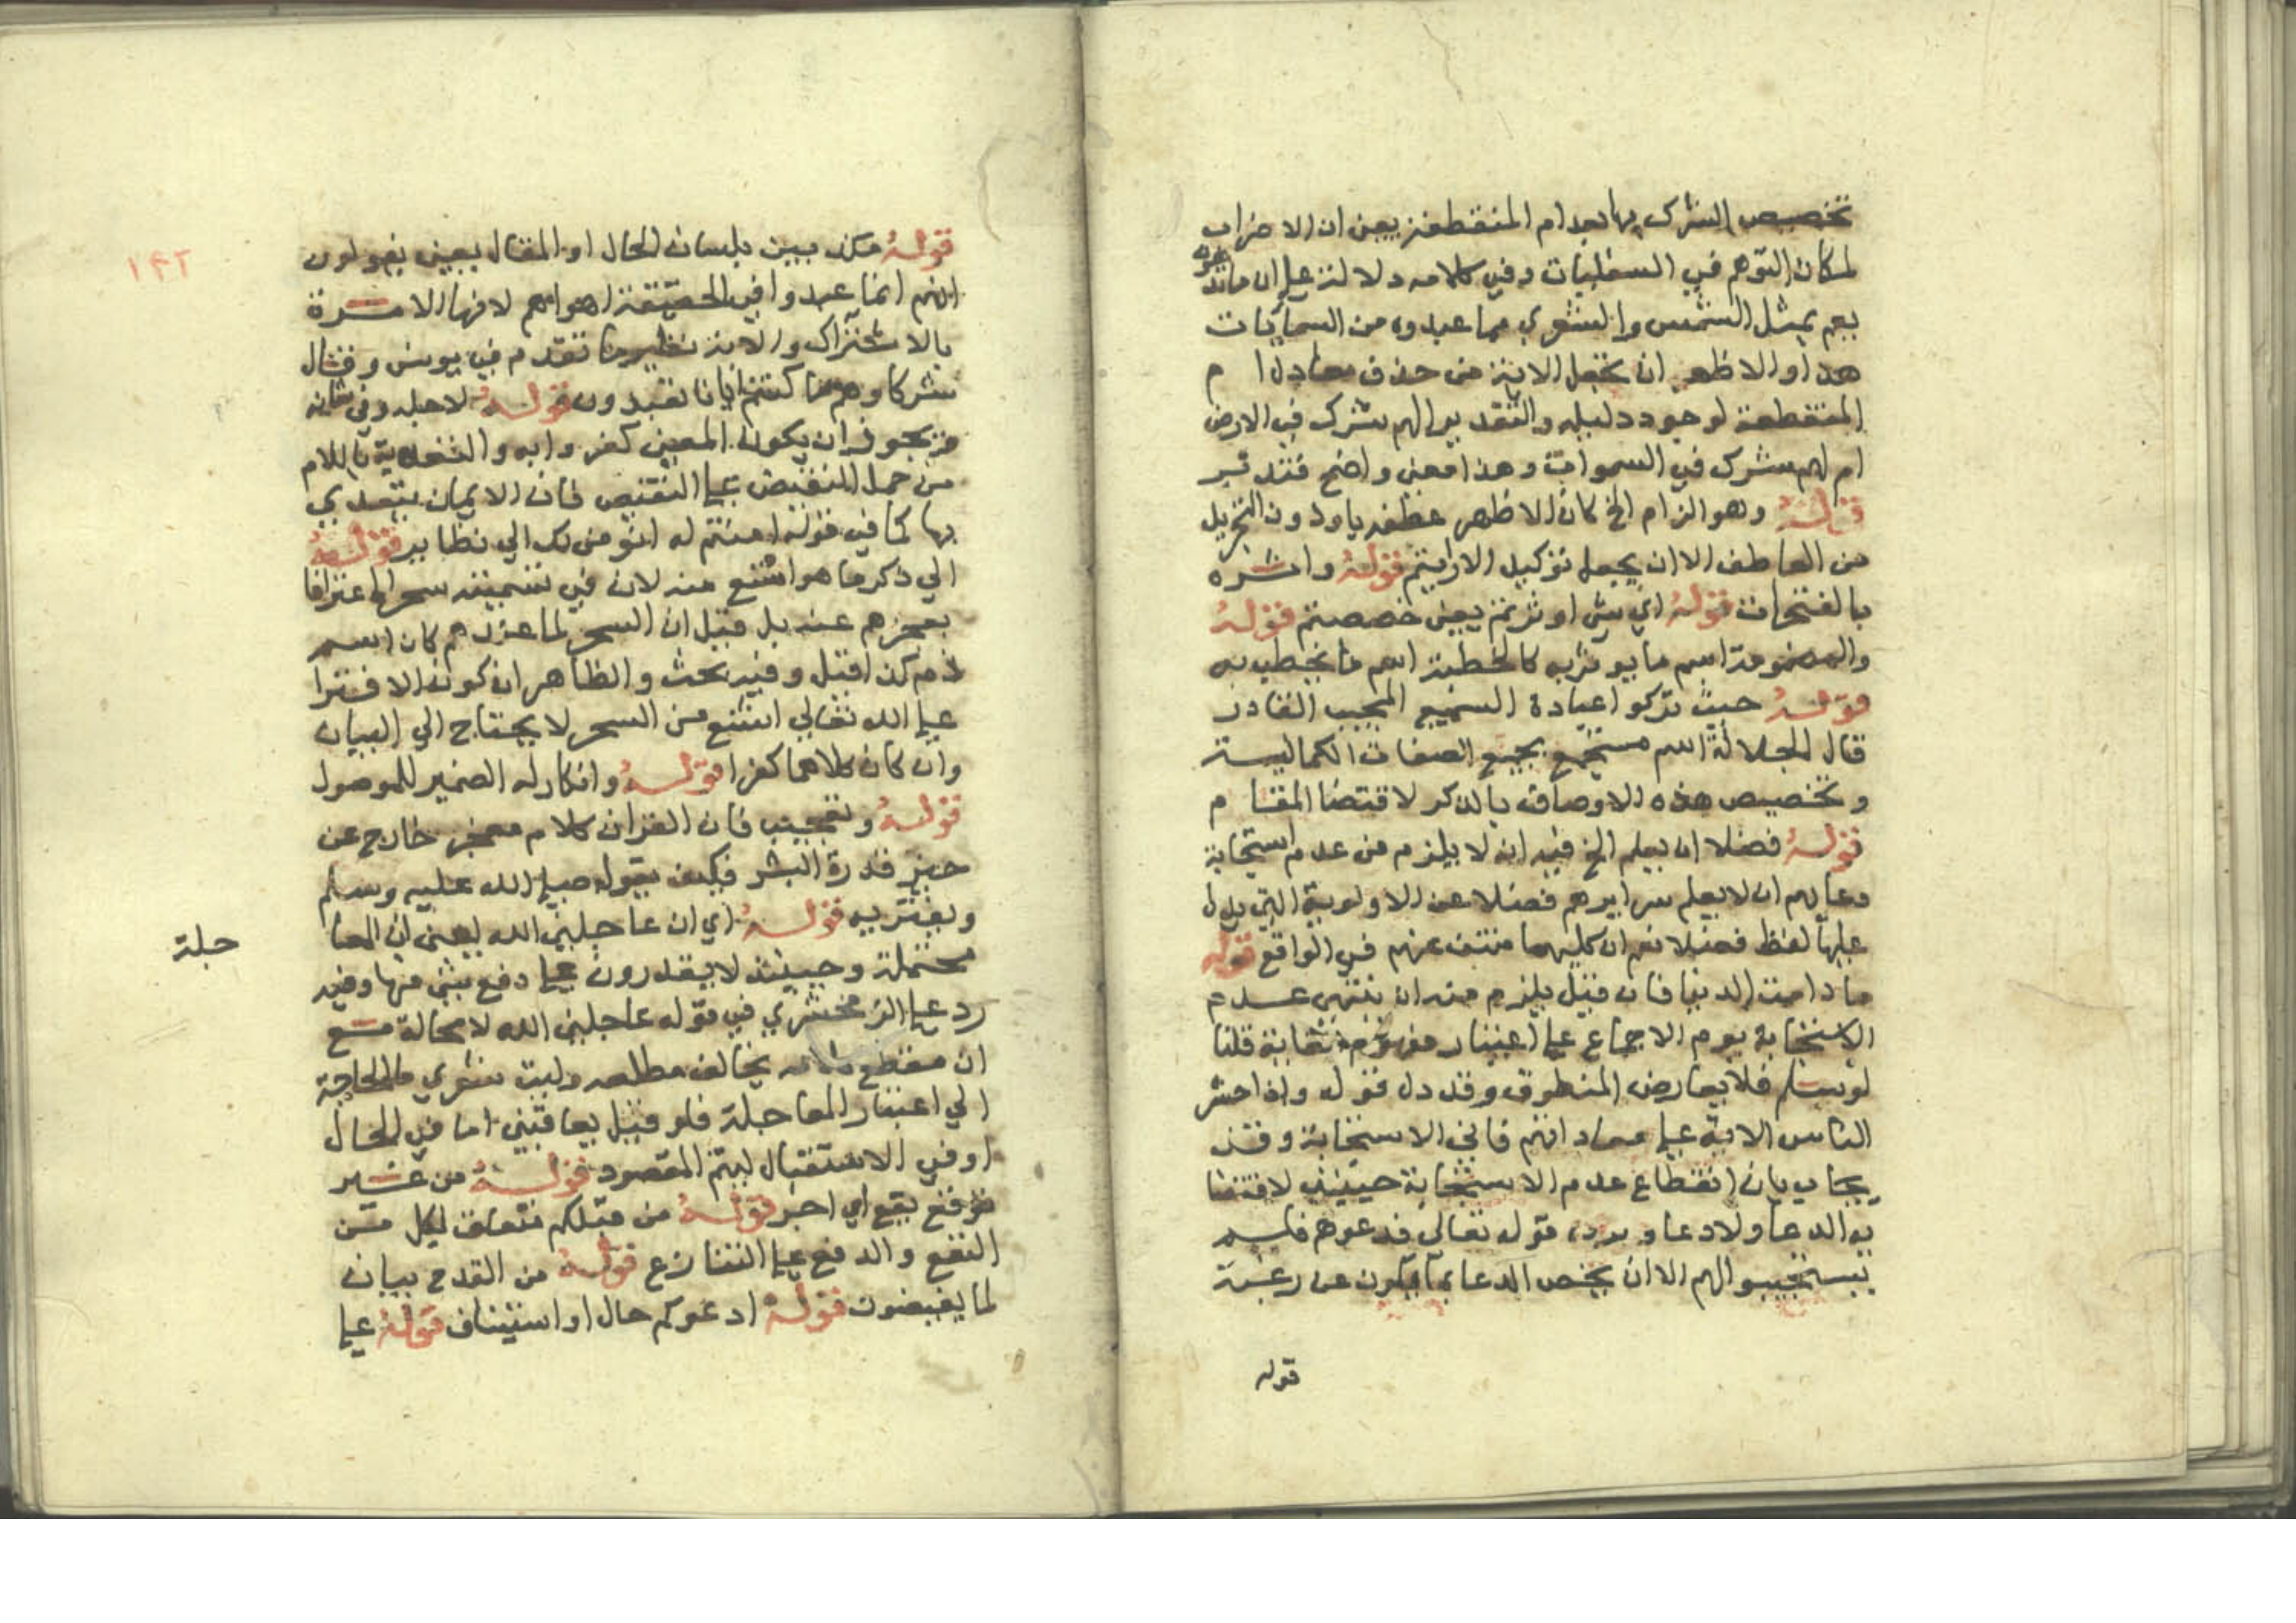 تخصيص الشرك بها بعد ام المنقطعة يعني ان الاضراب
لمكان التوهم في السفليات وفي كلامه دلالة على ان ما تدعونه
يعم بمثل الشمس والشعري مما عبدوه من السمايات
هذا والاظهر ان تجعل الاية من حذف معادل ام
المنقطعة لوجود دليله والتقدير الهم شرك في الارض
ام لهم شرك في السموات وهذا معنى واضح فتدبر
قوله وهو الزام الخ كان الاظهر عطفه باو دون التخييل
من العاطف الا ان يجعل توكيد الارايتم قوله واثره
بالفتحات قوله اي شي اوثرتم يعني خصصتم قوله
والمضمومة اسم ما يوثر به كالخطبة اسم ما يخطب به
قوله حيث تركوا عبادة السميع المجيب القادر
قال الجلالة اسم مستجمع بجميع الصفات الكمالية
وتخصيص هذه الاوصاف بالذكر لاقتضا المقام
قوله فضلا ان يعلم الخ فيه انه لا يلزم من عدم استجابة
دعايهم ان لا يعلم سرايرهم فضلا عن الاولوية التي يدل
عليها لفظ فضلا نعم ان كليهما منتف عنهم في الواقع قوله
ما دامت الدنيا فان قيل يلزم منه ان ينتهي عدم
الاستجابة يوم الاجماع على اعتبار مفهوم الغاية قلنا
لو سلم فلا يعارض المنطوق وقد دل قوله واذا حشر
الناس الاية على معاداتهم فاني الاستجابة وقد
يجاب بان انقطاع عدم الاستجابة حينئذ لاقتضا
يه الدعا ولا دعا ويرد قوله تعالى فدعوهم فلم
يستجيبوا لهم الا ان يخص الدعا بما يكون عن رغبة
قوله
١٤٢
قوله مكذبين بلسان الحال او المقال يعني يقولون
انهم انما عبدوا في الحقيقة اهواهم لانها الامرة
بالاشتراك والاية نظير ما تقدم في يونس وقال
شركاوهم ما كنتم ايانا تعبدون قوله لاجله وفي شانه
فيجوز ان يكون المعنى كفروا به والتعدية باللام
من حمل النقيض على النقيض فان الايمان يتعدي
بها كما في قوله امنتم له انومن لك الي نظاير قوله
الي ذكر ما هو اشنع منه لان في تسميته سحرا اعترافا
بعجزهم عنه بل قيل ان السحر لما عندهم كان اسم
ذم كذا قيل وفيه بحث والظاهر ان كون الافترا
على الله تعالي اشنع من السحر لا يحتاج الي البيان
وان كان كلاهما كفرا قوله وانكار له الضمير للموصول
قوله وتعجيب فان القران كلام معجز خارج عن
حيز قدرة البشر فكيف يقوله صلى الله عليه وسلم
ويفتريه قوله اي ان عاجلني الله يعني ان المعا
جلة
محتملة وحينئذ لا يقدرون على دفع شي منها وفيه
رد على الزمخشري في قوله عاجلني الله لا محالة مع
ان مقطع كلامه يخالف مطلعه وليت شعري ما الحاجة
الي اعتبار المعاجلة فلو قيل يعاقبني اما في الحال
او في الاستقبال ليتم المقصود قوله من غير
توقع يقع اي اخبر قوله من قبلكم متعلق لكل من
النفع والدفع على التنازع قوله من القدح بيان
لما يفيضون قوله ادعوكم حال او استيناف قوله على